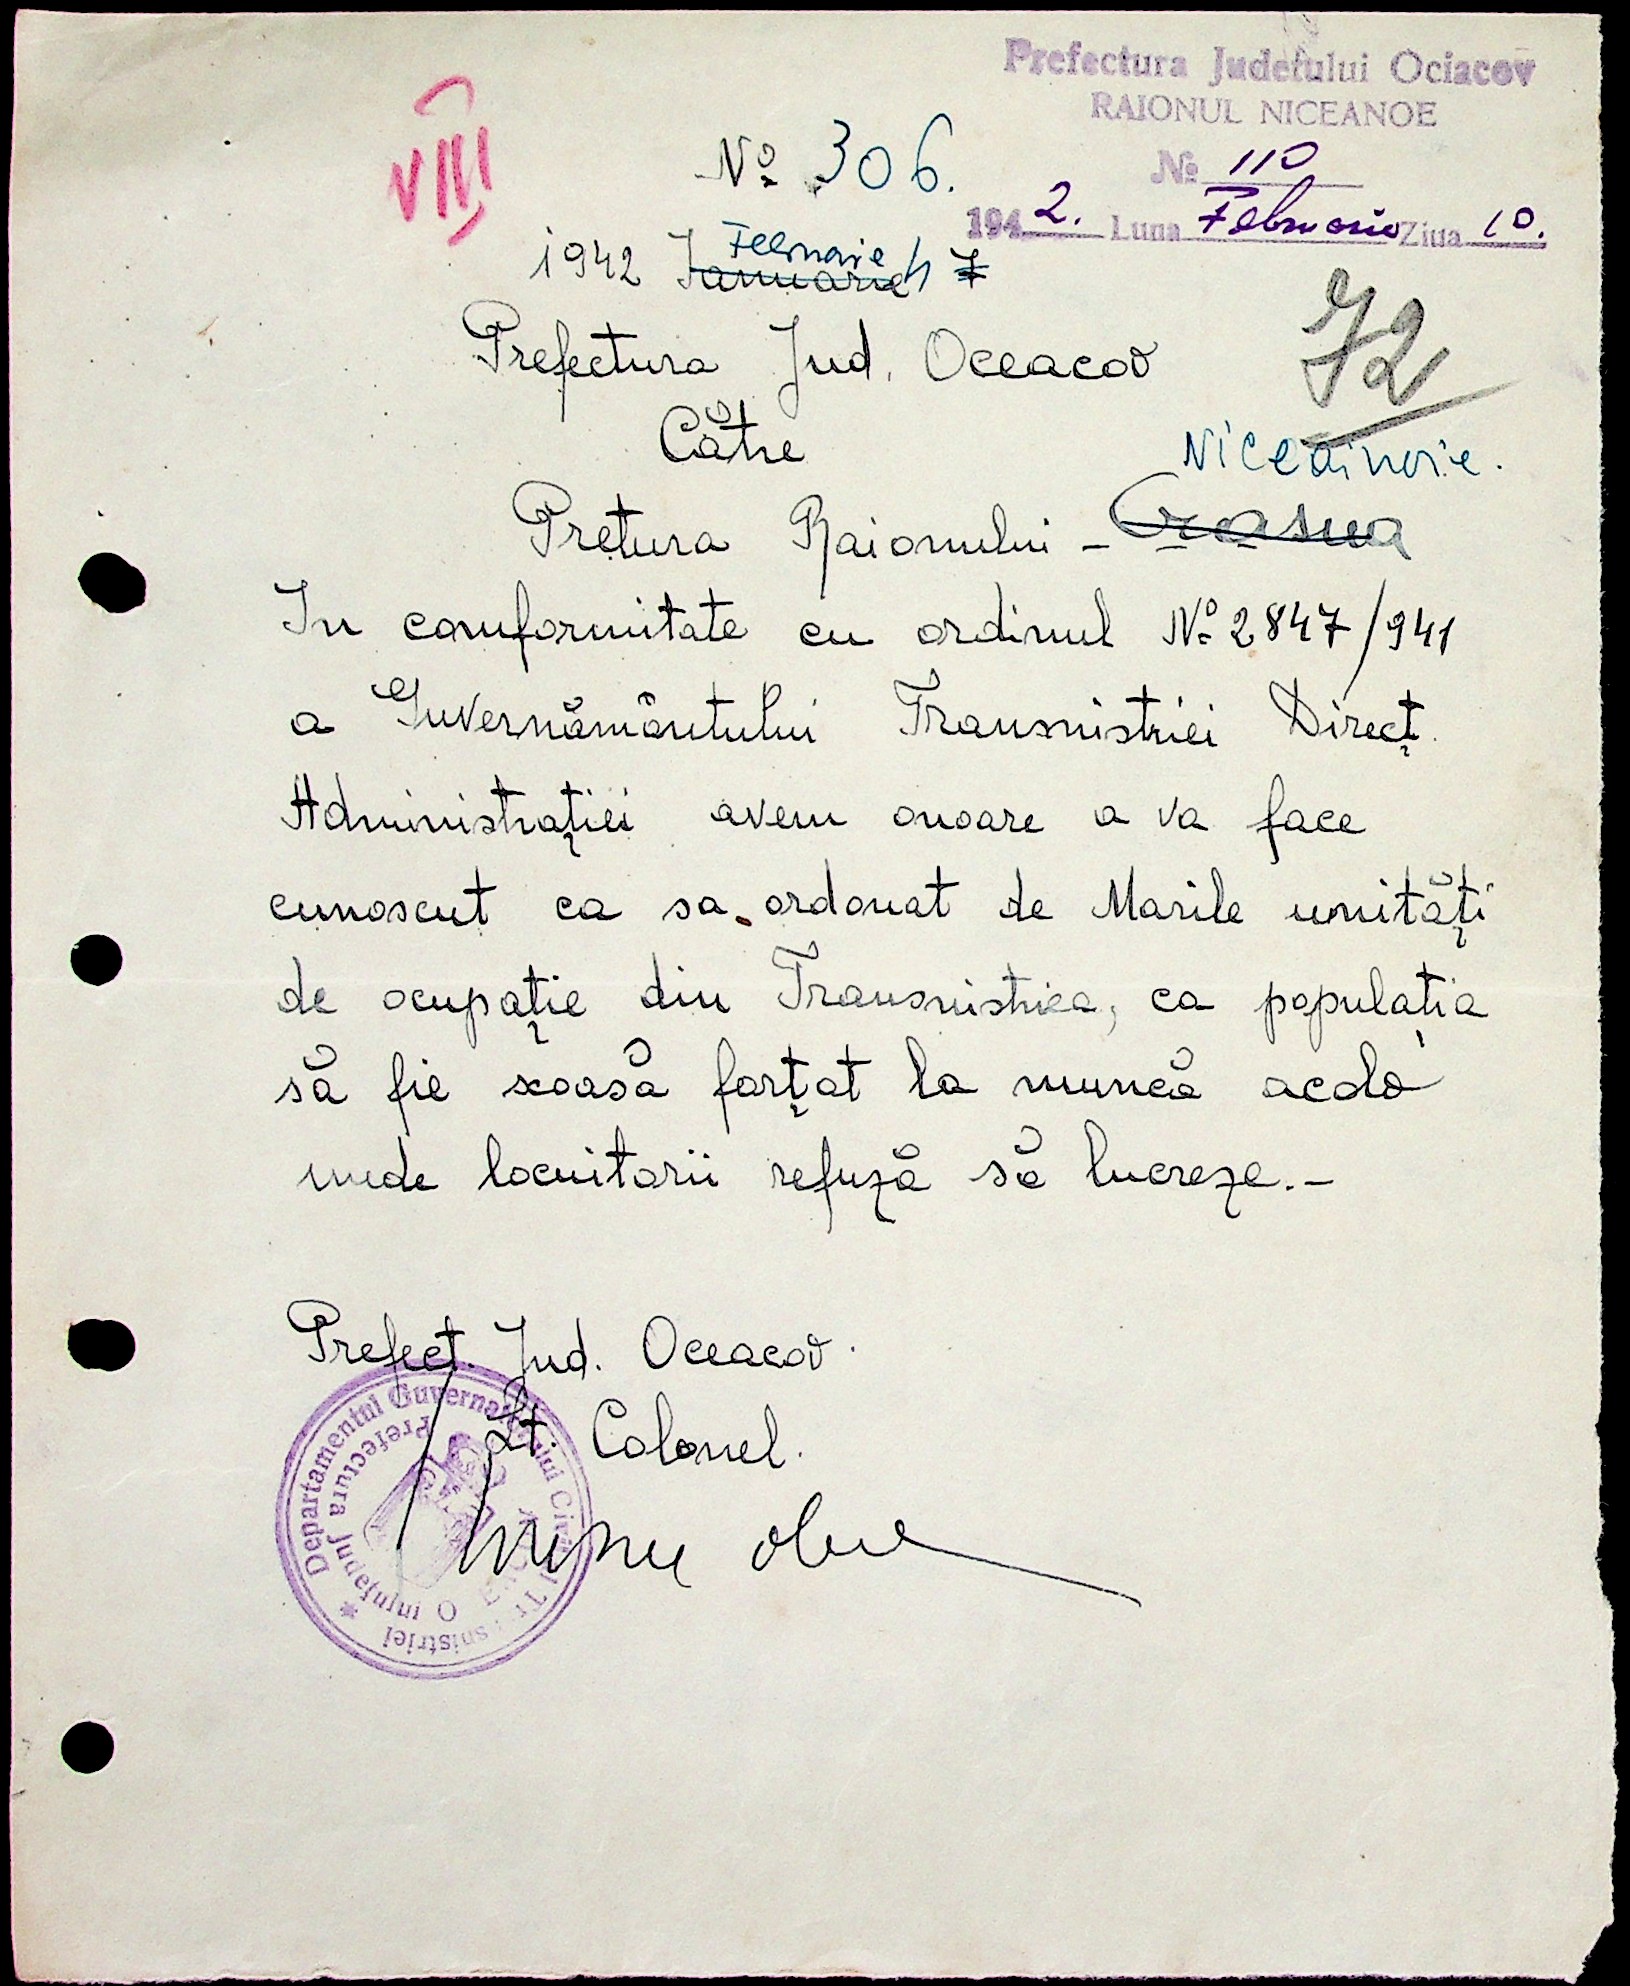 Prefectura Judetului Ociacov
RAIONUL NICEANOE
№ 110
1942. Luna Februarie Ziua 10.
VIII
Nº 306.
Februarie 4
1942 Ianuarie 7
Prefectura Jud. Oceacov
72
Către
Niceainoie.
Prețura Raionului - Crasna
In comformitate cu ordinul Nº 2847/941
a Guvernământului Transnistriei Direcț.
Administrației avem onoare a va face
cunoscut ca sa ordonat de Marile unități
de ocupație din Transnistriea, ca populația
să fie scoasă forțat la muncă acolo
unde locuitorii refuză să lucreze.-
Prefect. Jud. Oceacov.
Lt. Colonel.
Departamentul Guvernamantului Civil Transnistriei
Prefectura Județului O